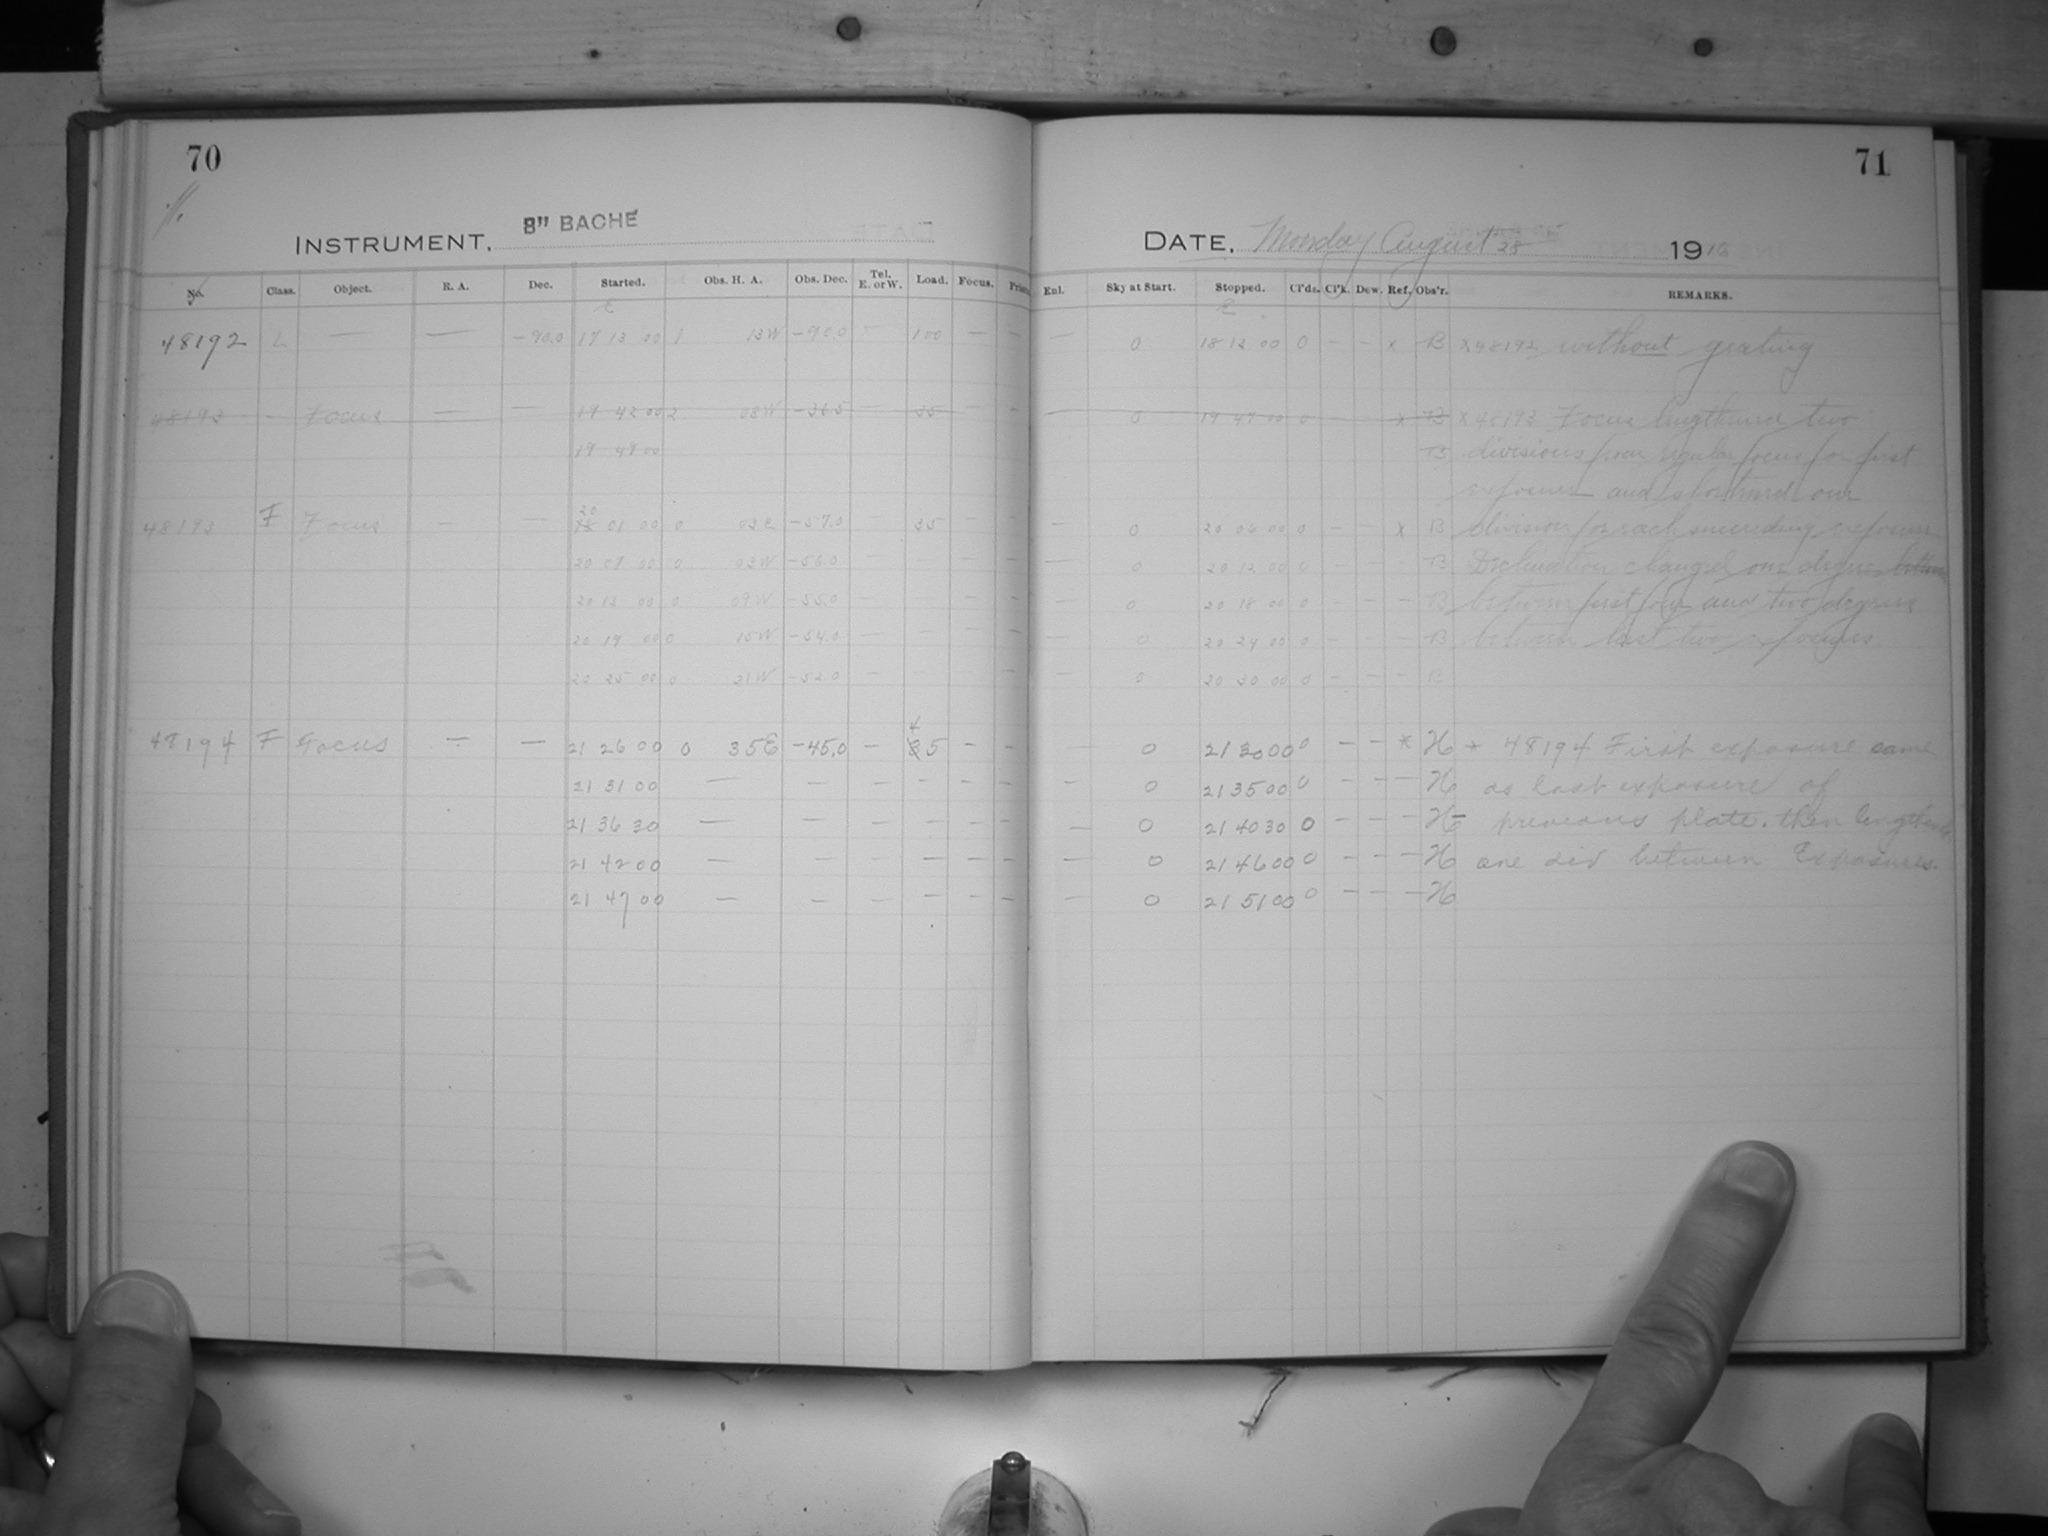 70
INSTRUMENT, 8" BACHE
No. Class. Object. R. A. Dec. Started. Obs. H. A. Obs. Dec. Tel. E. or W. Load. Focus.
48192 L — — -90.0 17 13 00 1 13W -90.0 — 100 — —
48193 - Focus — — 19 42 00 2 08W -36.5 — 35 — —
19 49 00
48193 F Focus — — 20 01 00 0 03E -57.0 — 35 — —
20 07 00 0 03W -56.0 — — — —
20 13 00 0 09W -55.0 — — — —
20 19 00 0 15W -54.0 — — — —
20 25 00 0 21W -52.0 — — — —
48194 F Focus — — 21 26 00 0 35E -45.0 — 45 — —
21 31 00 — — — — — —
21 36 30 — — — — — —
21 42 00 — — — — — —
21 47 00 — — — — — —
71
DATE, Monday August 28 1916
Enl. Sky at Start. Stopped. Cl'ds. Cl'k. Dew. Ref. Obs'r. REMARKS.
— 0 18 13 00 0 - - x B x48192 without grating
— 0 19 47 00 0 x B x48193 Focus lengthened two
B divisions from regular focus for first
exposure and shortened one
— 0 20 06 00 0 - - x B division for each succeeding exposure
— 0 20 12 00 0 - - - B Declination changed one degree
— 0 20 18 00 0 - - - B between first four and two degrees
— 0 20 24 00 0 - - - B between last two exposures
— 0 20 30 00 0 - - - B
— 0 21 30 00 0 - - * H * 48194 First exposure same
— 0 21 35 00 0 - - - H as last exposure of
— 0 21 40 30 0 - - - H previous plate. then lengthened
— 0 21 46 00 0 - - - H one div between Exposures.
— 0 21 51 00 0 - - - H